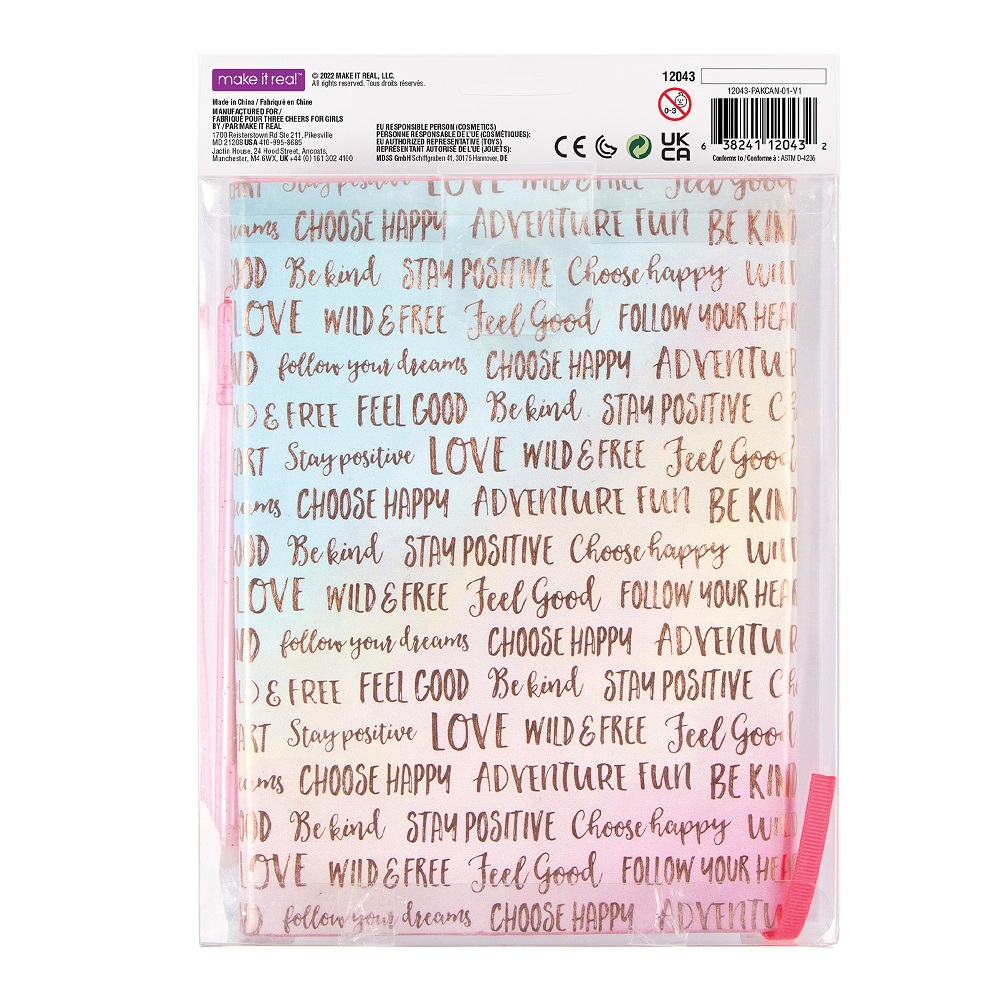 make it real™
© 2022 MAKE IT REAL, LLC.
All rights reserved. Tous droits réservés.
Made in China / Fabriqué en Chine
MANUFACTURED FOR /
FABRIQUÉ POUR THREE CHEERS FOR GIRLS
BY / PAR MAKE IT REAL
1700 Reisterstown Rd Ste 211, Pikesville
MD 21208 USA 410-995-8685
Jactin House, 24 Hood Street, Ancoats,
Manchester, M4 6WX, UK +44 (0) 161 302 4100
EU RESPONSIBLE PERSON (COSMETICS)
PERSONNE RESPONSABLE DE L'UE (COSMÉTIQUES):
EU AUTHORIZED REPRESENTATIVE (TOYS)
REPRÉSENTANT AUTORISÉ DE L'UE (JOUETS):
MDSS GmbH Schiffgraben 41, 30175 Hannover, DE
CE
UK
CA
12043
0-3
12043-PAKCAN-01-V1
6 38241 12043 2
Conforms to / Conforme à : ASTM D-4236
ART Stay positive LOVE WILD & FREE Feel Good
eams CHOOSE HAPPY ADVENTURE FUN BE KIN
OOD Be kind STAY POSITIVE Choose happy WIL
LOVE WILD & FREE Feel Good FOLLOW YOUR HEA
ND follow your dreams CHOOSE HAPPY ADVENTUR
LD & FREE FEEL GOOD Be kind STAY POSITIVE C
EART Stay positive LOVE WILD & FREE Feel Good
eams CHOOSE HAPPY ADVENTURE FUN BE KIN
OOD Be kind STAY POSITIVE Choose happy WIL
LOVE WILD & FREE Feel Good FOLLOW YOUR HEA
ND follow your dreams CHOOSE HAPPY ADVENTUR
LD & FREE FEEL GOOD Be kind STAY POSITIVE Ch
EART Stay positive LOVE WILD & FREE Feel Good
eams CHOOSE HAPPY ADVENTURE FUN BE KIN
OOD Be kind STAY POSITIVE Choose happy WIL
LOVE WILD & FREE Feel Good FOLLOW YOUR HEA
ND follow your dreams CHOOSE HAPPY ADVENTU